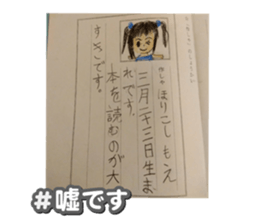 ほりこしもえ
三月二十三日生ま
れです。
本を読むのが大
すきです。
#嘘です